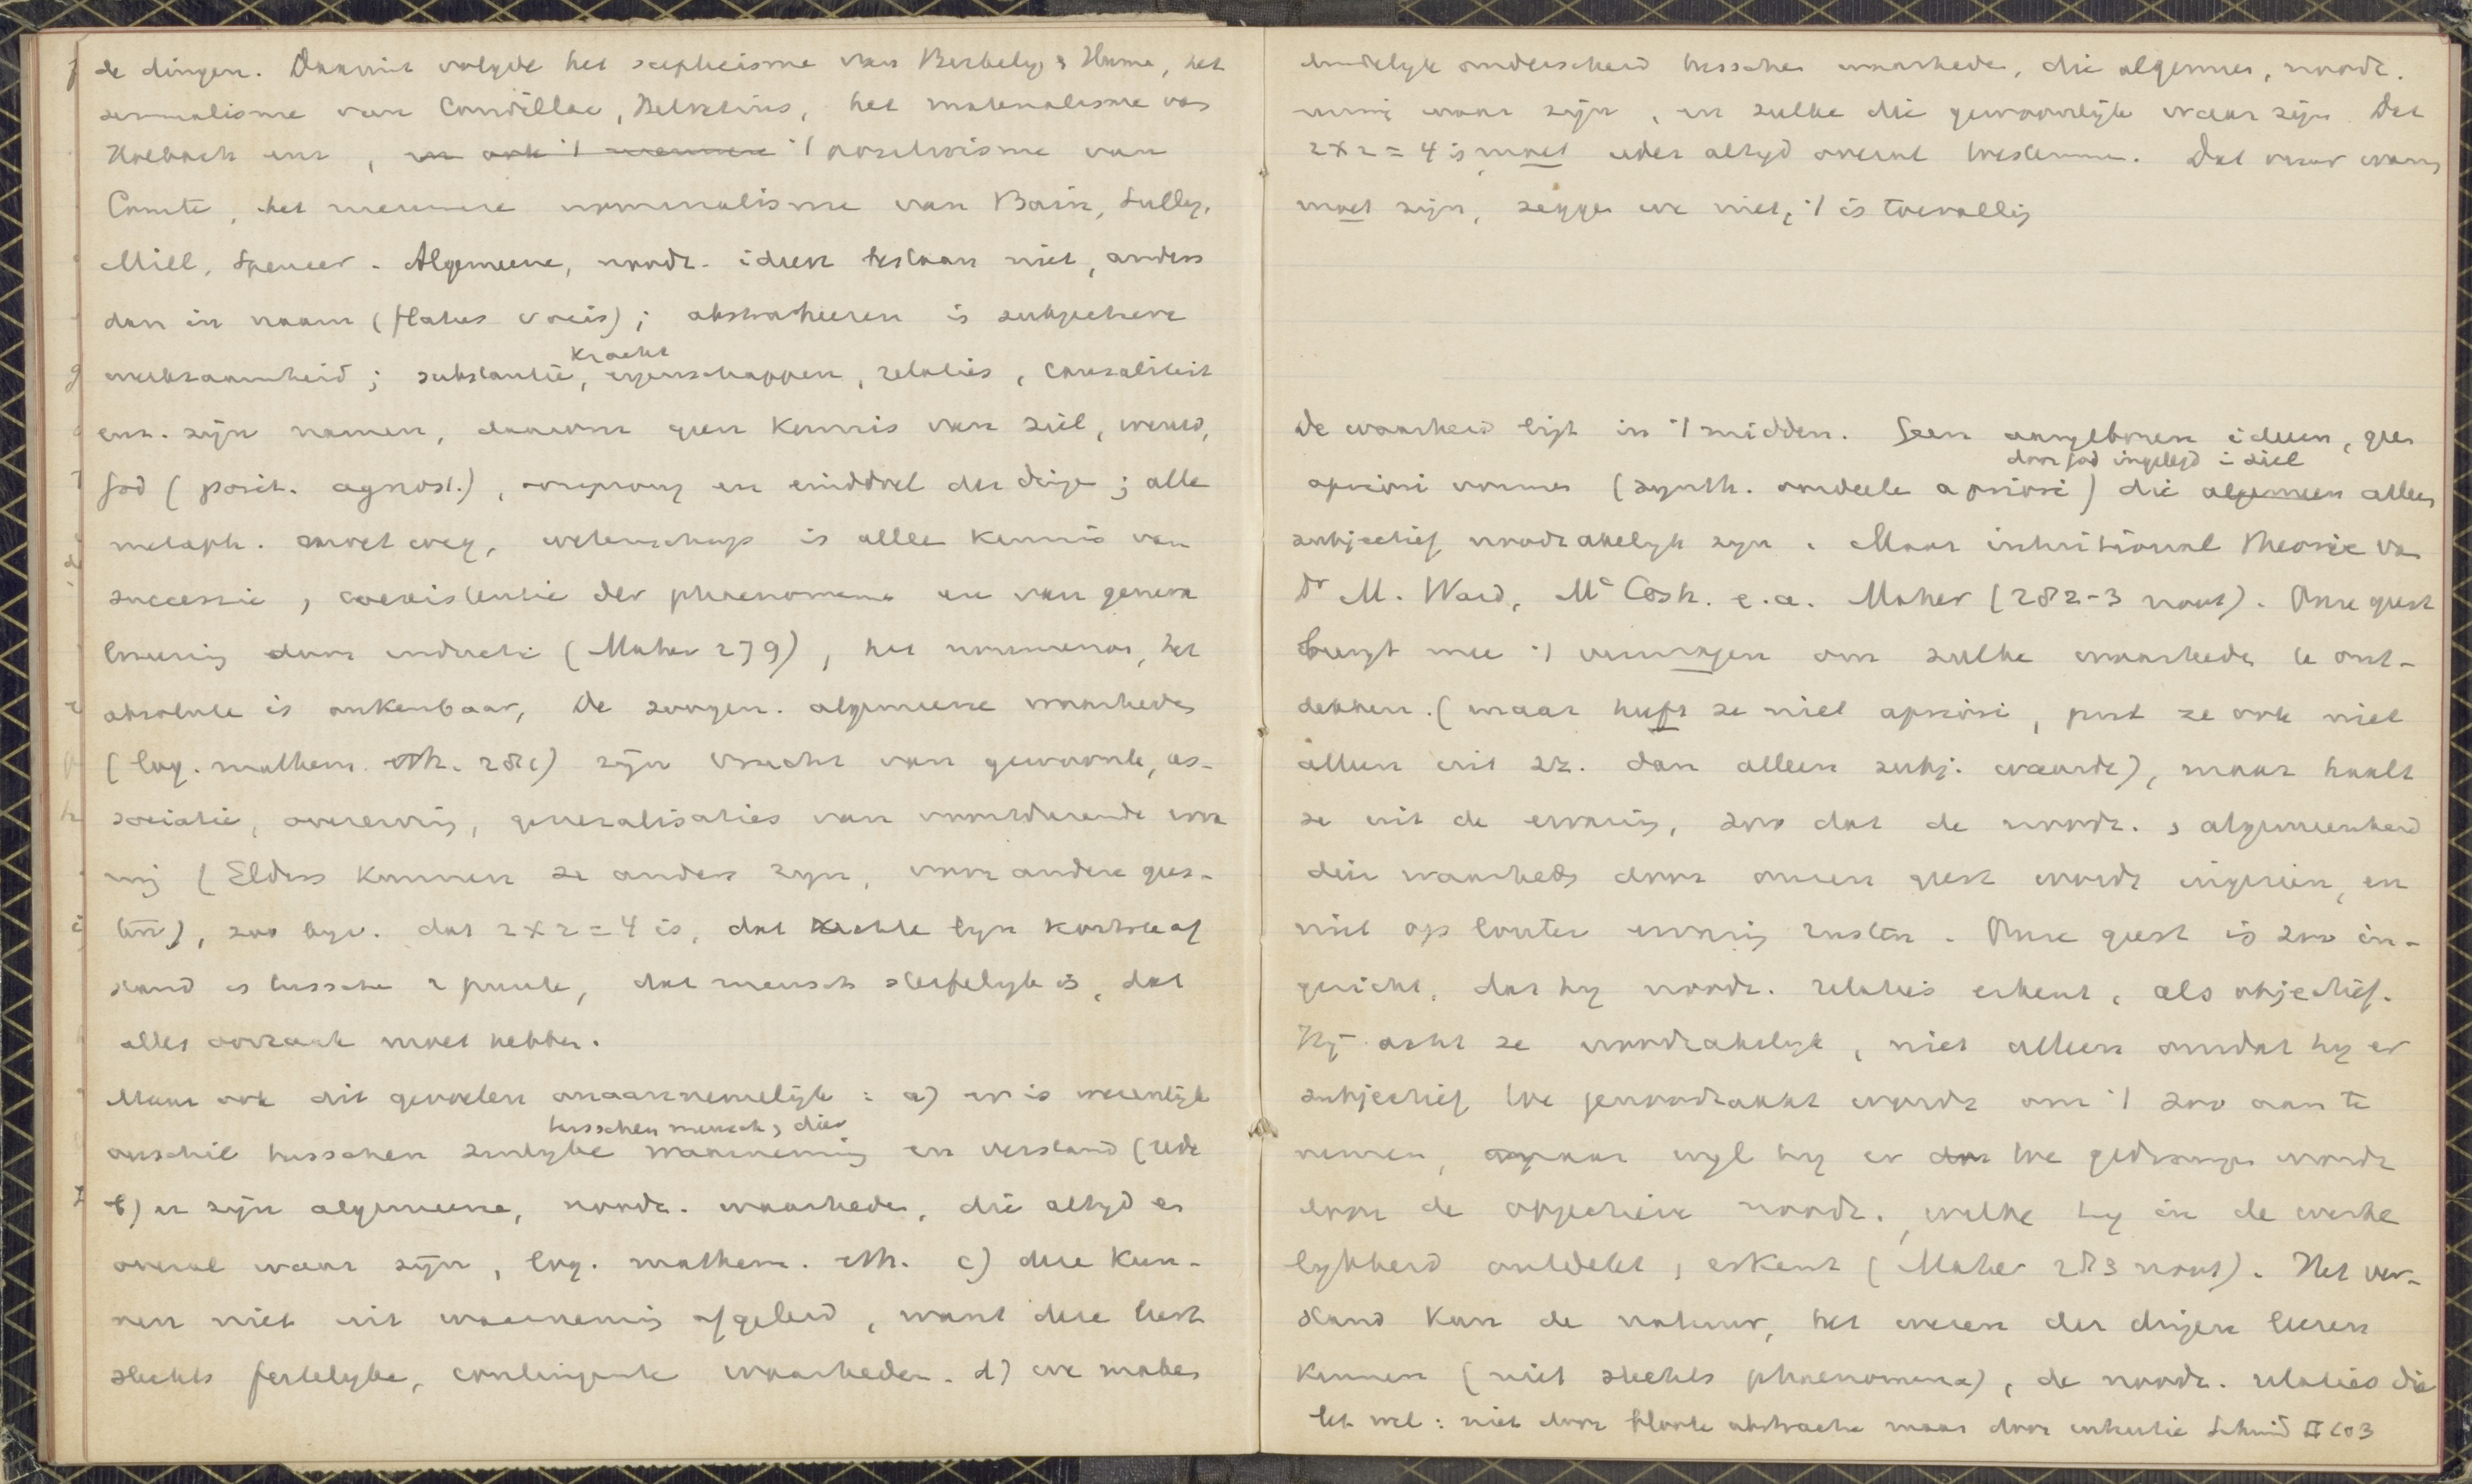 de dingen. Daaruit volgde het scepticisme van Berkely, & Hume, het
sensualisme van Condillac, Helvetius, het materialisme van
Holbach enz, en ook 't nieuwere 't positivisme van
Comte, het nieuwere nominalisme van Bain, Sully,
Mill, Spencer. Algemeene, noodz. ideen bestaan niet, anders
dan in naam (flatus vocis); abstraheeren is subjectieve
kracht
werkzaamheid; substantie, eigenschappen, relaties, causaliteit
enz. zijn namen, daarom geen kennis van ziel, wereld,
God (posit. agnost.), oorsprong en einddoel der dinge; alle
metaph. moet weg, wetenschap is alle kennis van
successie, coexistentie der phaenomena en van genera
liseering door inductie (Maher 279), het noumenon, het
absolute is onkenbaar, De zoogen. algemeene waarheden
(log. mathem. eth. 281) zijn vrucht van gewoonte, as-
sociatie, overerving, generalisaties van voortdurende erva
ring (Elders kunnen ze anders zyn, voor andere gees-
ten), zoo byv. dat 2 x 2 = 4 is, dat rechte lyn kortste af
stand is tussche 2 punte, dat mensch sterfelyk is, dat
alles oorzaak moet hebben.
Maar ook dit gevoelen onaannemelijk: a) er is wezenlijk
tusschen mensch, dier
verschil tusschen zinlyke waarneming en verstand (rede
b) er zijn algemeene, noodz. waarheden, die altyd en
overal waar zijn, log. mathem. eth. c) deze kun-
nen niet uit waarneming afgeleid, want deze leert
slechts feitelyke, contingente waarheden. d) we maken
duidelyk onderscheid tussche waarheden, die algemeen, noodz.
waar zijn, en zulke die gewoonlijk waar zijn. Dat
2x2 = 4 is, moet ieder altyd overal toestemmen. Dat vuur warm
moet zijn, zegge we niet, 't is toevallig
De waarheid ligt in 't midden. Geen aangeboren ideen, geen
door God ingelegd in ziel
apriori vormen (synth. oordeele a priori) die algemeen alleen
subjectief noodzakelyk zyn. Maar intuitional Theorie van
Dr M. Ward, Mc Cosh. e.a. Maher (282-3 noot). Onze geest
brengt mee 't vermogen om zulke waarheden te ont-
dekken. (maar heeft ze niet apriori, put ze ook niet
alleen uit zz. dan alleen subj. waarde), maar haalt
ze uit de ervaring, zoo dat de noodz. & algemeenheid
dier waarheden door onzen geest wordt ingezien, en
niet op louter ervaring rusten. Onze geest is zoo in-
gericht, dat hy noodz. relaties erkent, als objectief.
Hij acht ze noodzakelyk, niet alleen omdat hy er
subjectief toe genoodzaakt wordt om 't zoo aan te
nemen, maar wyl hy er toe gedrongen wordt
door de objectieve noodz. welke hy in de werke
lykheid ontdekt, erkent (Maher 283 noot). Het ver-
stand kan de natuur, het wezen der dingen leeren
kennen (niet slechts phaenomena), de noodz. relaties die
let wel: niet door bloote abstractie maar door Schmid II 203